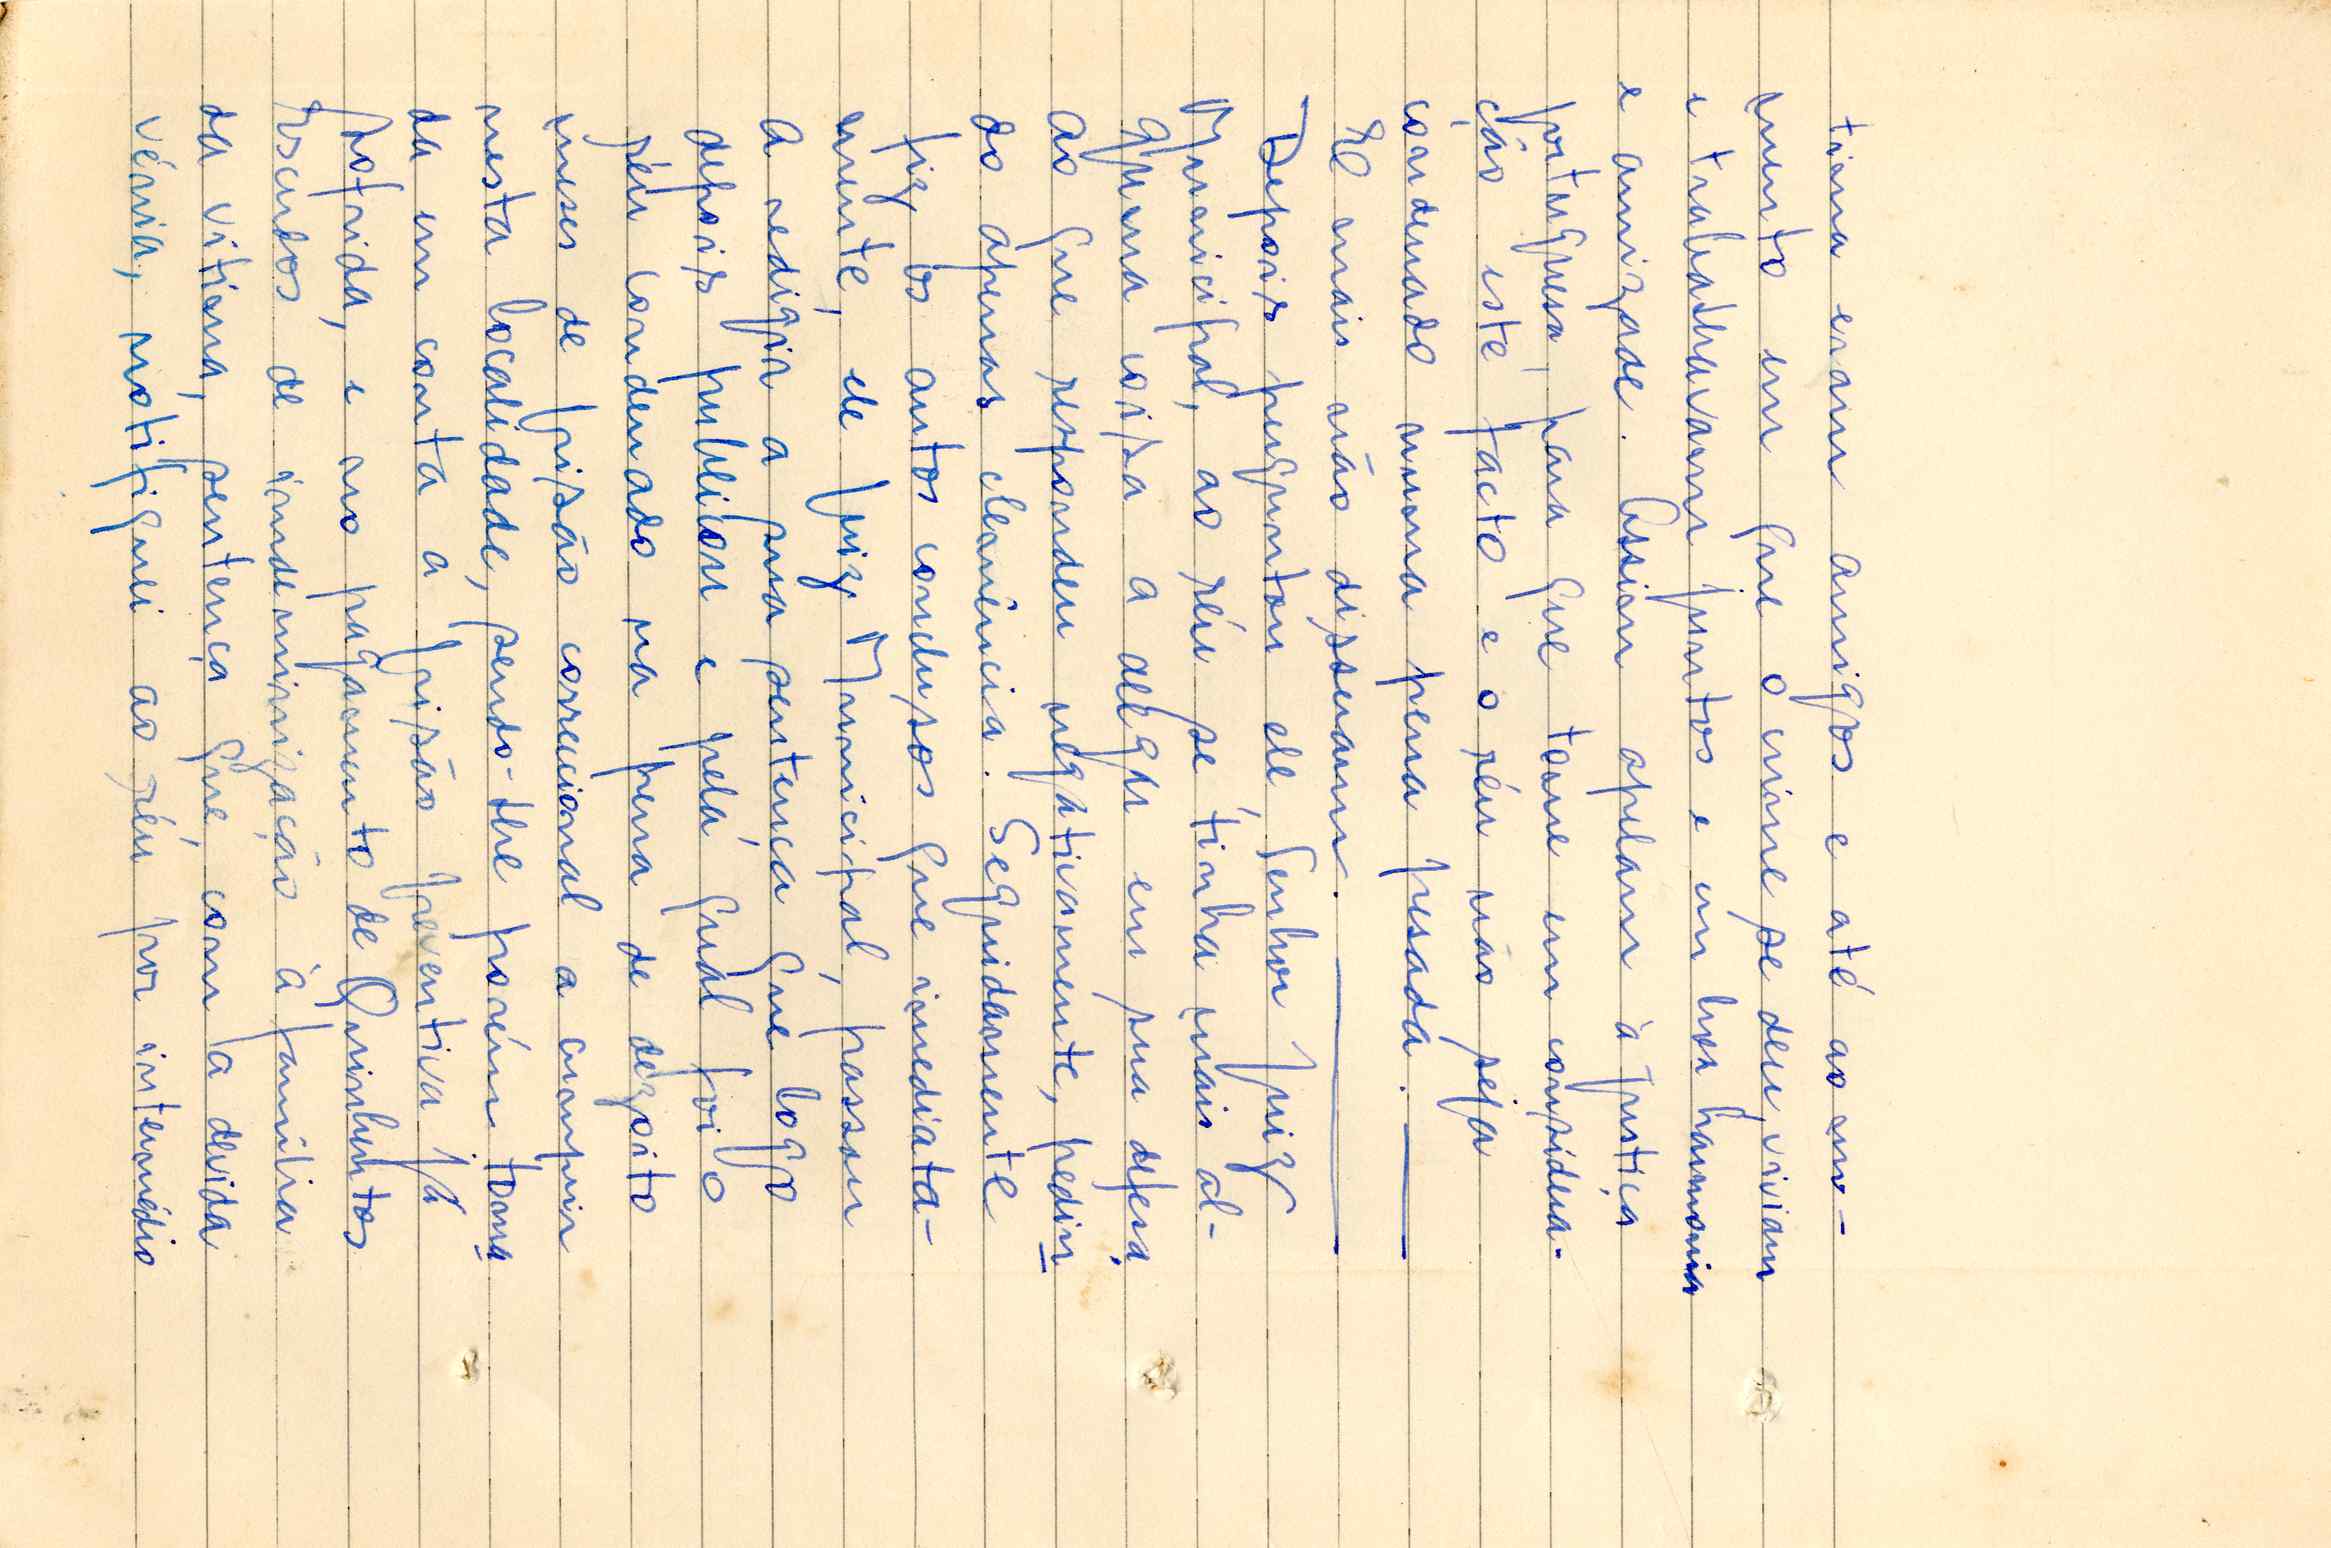 tima eram amigos e até ao mo-
mento em que o crime se deu, viviam
e trabalhavam juntos e em boa harmonia
e amizade. Assim apelam à justiça
portuguesa, para que tome em considera-
ção este facto e o réu não seja
condenado numa pena pesada.
E mais não disseram.
Depois perguntou ele Senhor Juiz
Municipal, ao réu se tinha mais al-
guma coisa a alegar em sua defesa
ao que respondeu negativamente, pedin
do apenas clemência. Seguidamente
fiz os autos conclusos que imediata-
mente, ele Juiz Municipal, passou
a redigir a sua sentença que logo
depois publicou e pela qual foi o
réu condenado na pena de dezoito
meses de prisão correcional a cumprir
nesta localidade, sendo-lhe porém toma
da em conta a prisão preventiva já
sofrida, e no pagamento de Quinhentos
Escudos de indemnização à família
da vitima, sentença que, com a devida
vénia, notifiquei ao réu por intermédio